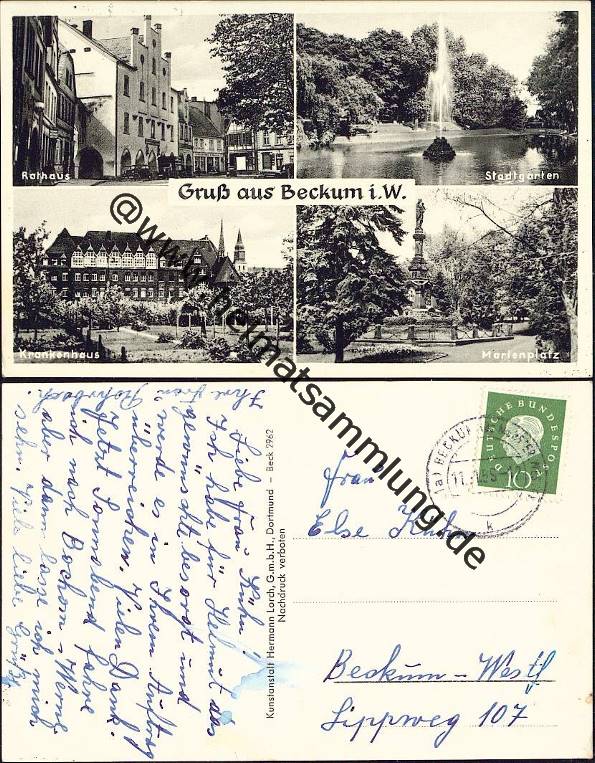 Rathaus
Stadtgarten
Gruß aus Beckum i.W.
Krankenhaus
Marienplatz
@www.heimatsammlung.de
Liebe Frau Kühn!
Ich habe für Helmut das
gewünscht besorgt und
werde es in Ihrem Auftrag
überreichen. Vielen Dank.
Jetzt Sonnabend fahre
ich nach Bochum-Werne
aber dann lasse ich mich
sehn. Viele liebe Grüße
Ihre Frau Rohrbach.
Kunstanstalt Hermann Lorch, G.m.b.H., Dortmund – Beck 2962
Nachdruck verboten
DEUTSCHE BUNDESPOST
10
BECKUM
Frau
Else Kühn
Beckum-Westf
Lippweg 107